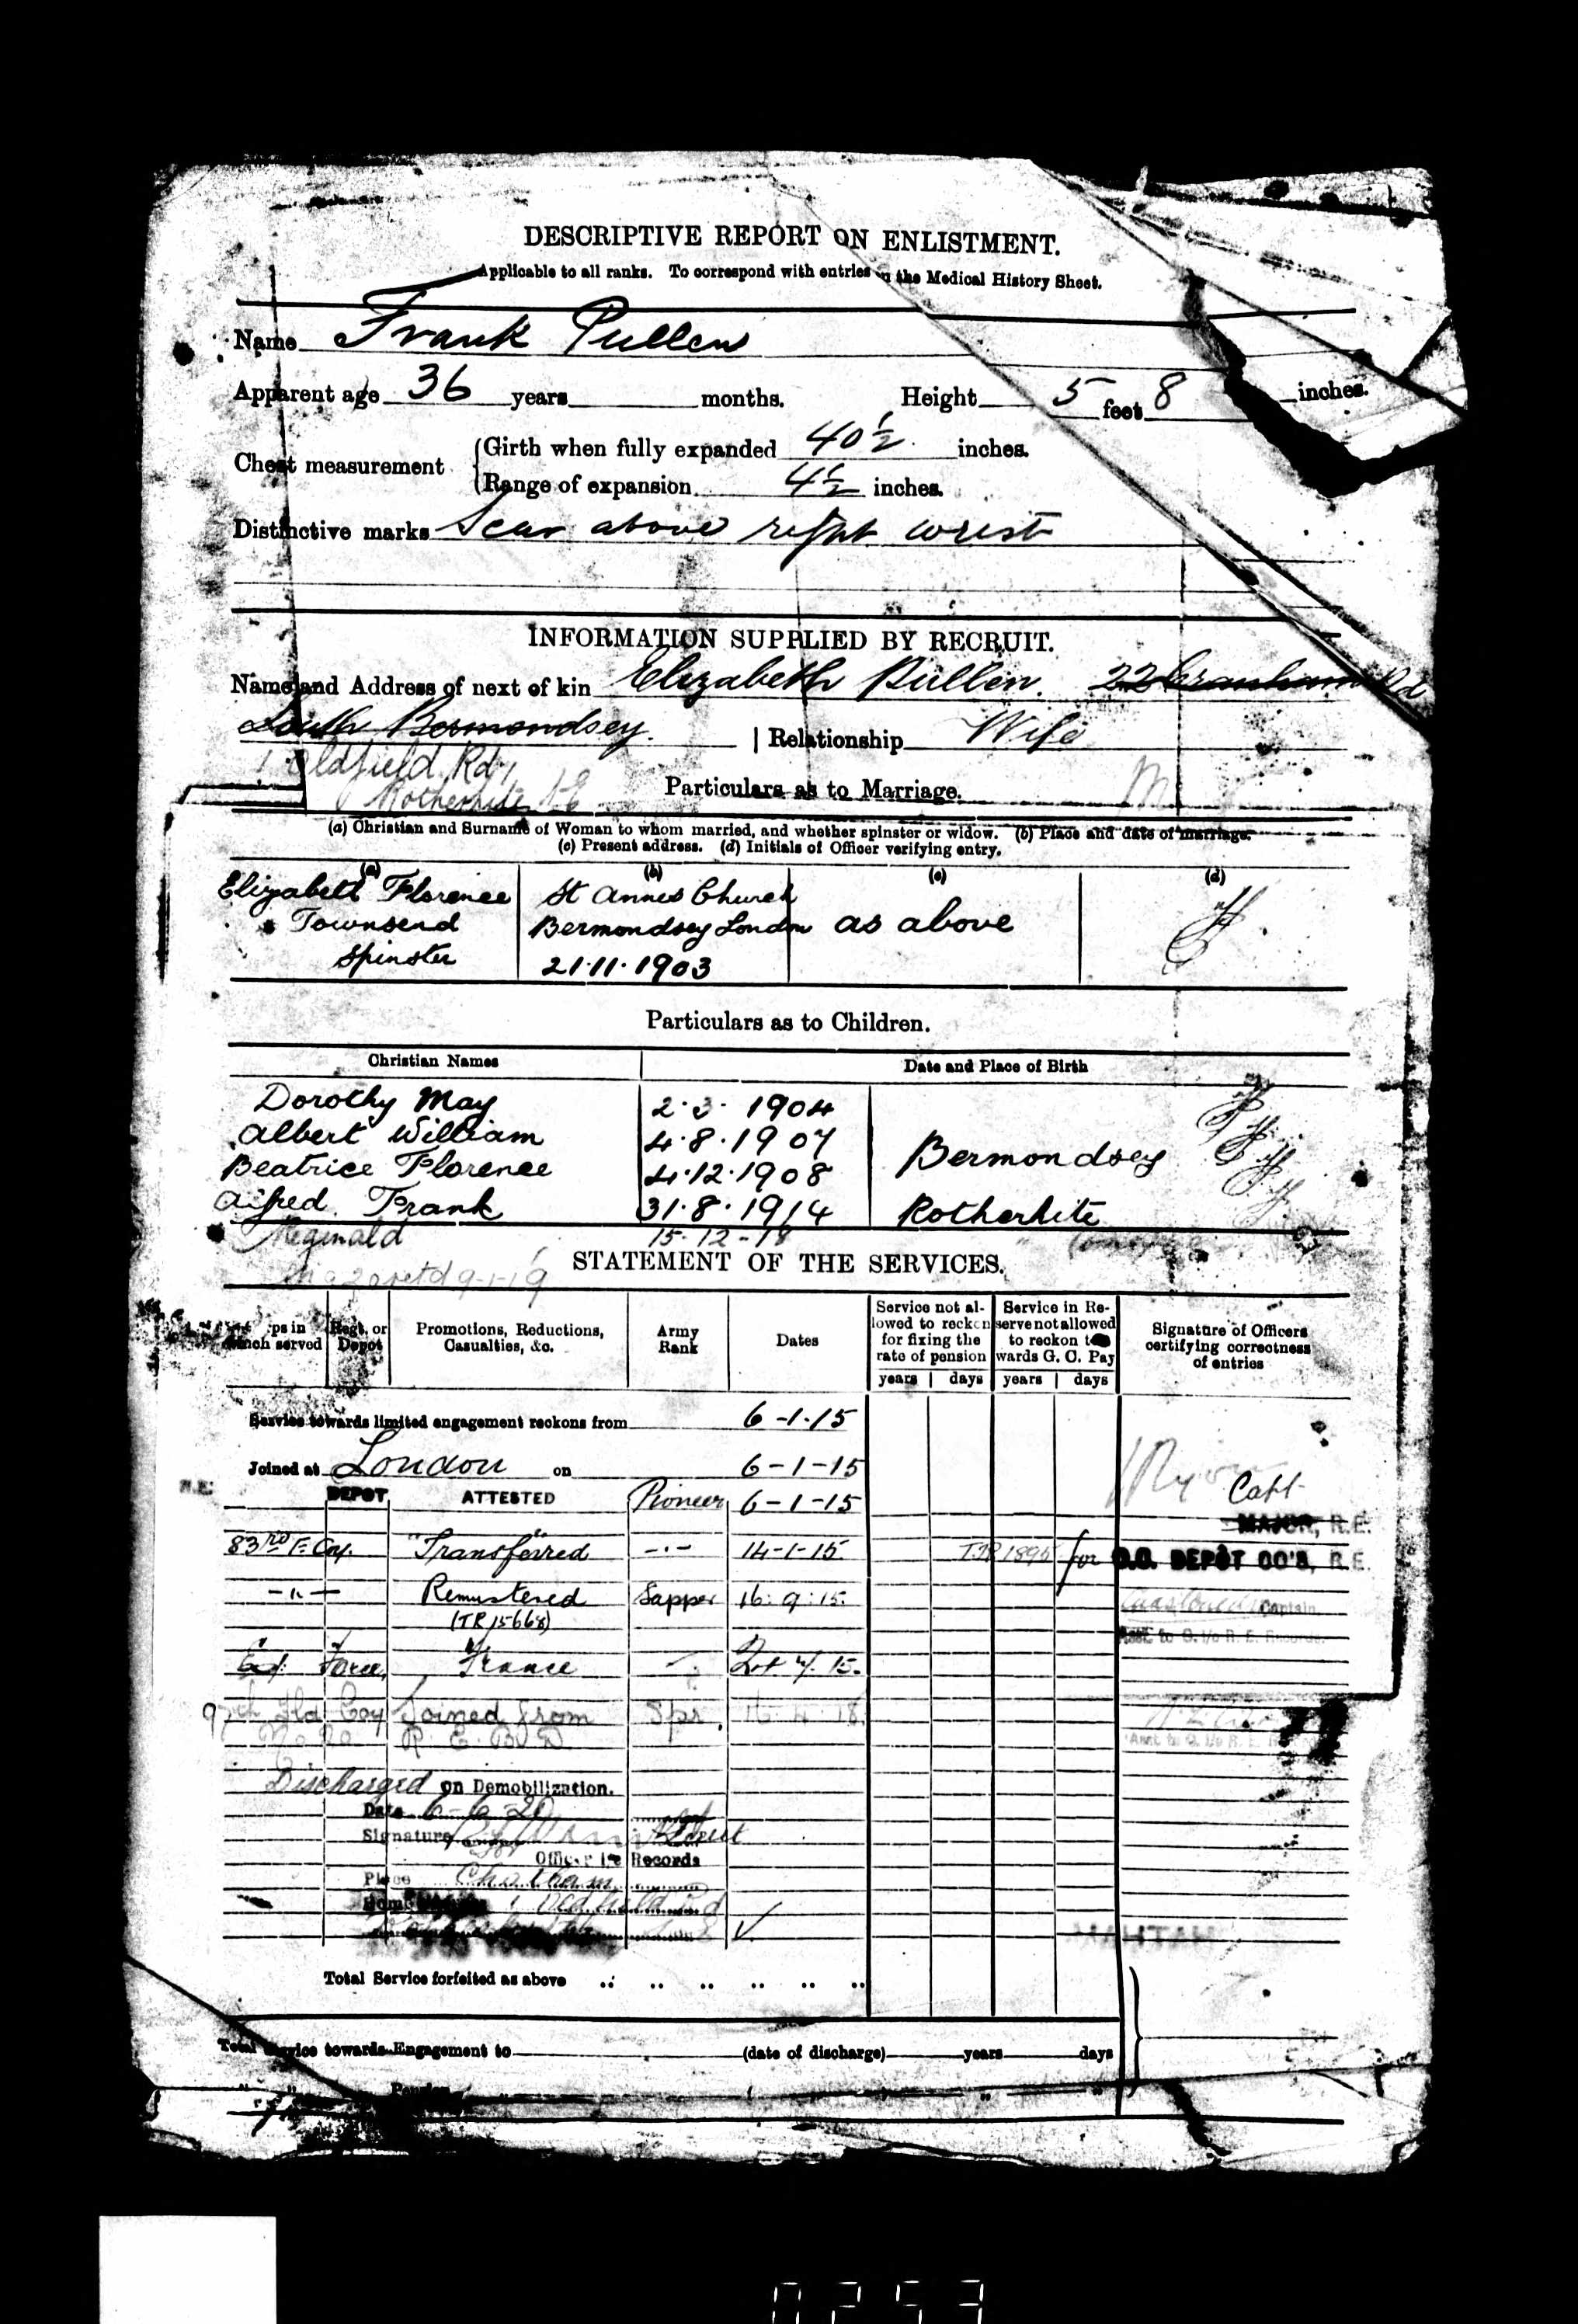 DESCRIPTIVE REPORT ON ENLISTMENT.
Applicable to all ranks. To correspond with entries on the Medical History Sheet.
Name Frank Pullen
Apparent age 36 years months. Height 5 feet 8 inches.
Chest measurement
Girth when fully expanded 40½ inches.
Range of expansion 4½ inches.
Distinctive marks Scar above right wrist
INFORMATION SUPPLIED BY RECRUIT.
Name and Address of next of kin Elizabeth Pullen. 22 Rd
South Bermondsey. | Relationship Wife
1 Oldfield Rd,
Rotherhithe SE
Particulars as to Marriage. M
(a) Christian and Surname of Woman to whom married, and whether spinster or widow. (b) Place and date of marriage.
(c) Present address. (d) Initials of Officer verifying entry.
(a) (b) (c) (d)
Elizabeth Florence St Annes Church
Townsend Bermondsey London as above
Spinster 21.11.1903
Particulars as to Children.
Christian Names Date and Place of Birth
Dorothy May 2.3.1904
Albert William 4.8.1907
Beatrice Florence 4.12.1908 Bermondsey
Alfred Frank 31.8.1914 Rotherhite
Reginald 15-12-18
9-1-19
STATEMENT OF THE SERVICES.
ps in which served Regt. or Depot Promotions, Reductions, Casualties, &c. Army Rank Dates Service not allowed to reckon for fixing the rate of pension Service in Reserve not allowed to reckon towards G. C. Pay Signature of Officers certifying correctness of entries
years days years days
Service towards limited engagement reckons from 6-1-15
Joined at London on 6-1-15
R.E. DEPOT ATTESTED Pioneer 6-1-15 Capt
MAJOR, R.E.
83rd F. Coy. "Transferred" -·- 14-1-15. TR 1895 for O.C. DEPÔT COO'S, R.E.
-"- Remustered Sapper 16:9:15.
(TR 15668) Captain
Asst. to O. i/c R. E. Records.
Force France 15.
Fld Coy Joined from Spr. 16.4.18.
R. E. B D
Asst to O. i/c R. E.
Discharged on Demobilization.
Date 6-6-20
Signature Lieut
for Officer i/c Records
Place Chatham
Home
Total Service forfeited as above
Total Service towards Engagement to (date of discharge) years days
" " Pension " ( " ) " "
0253